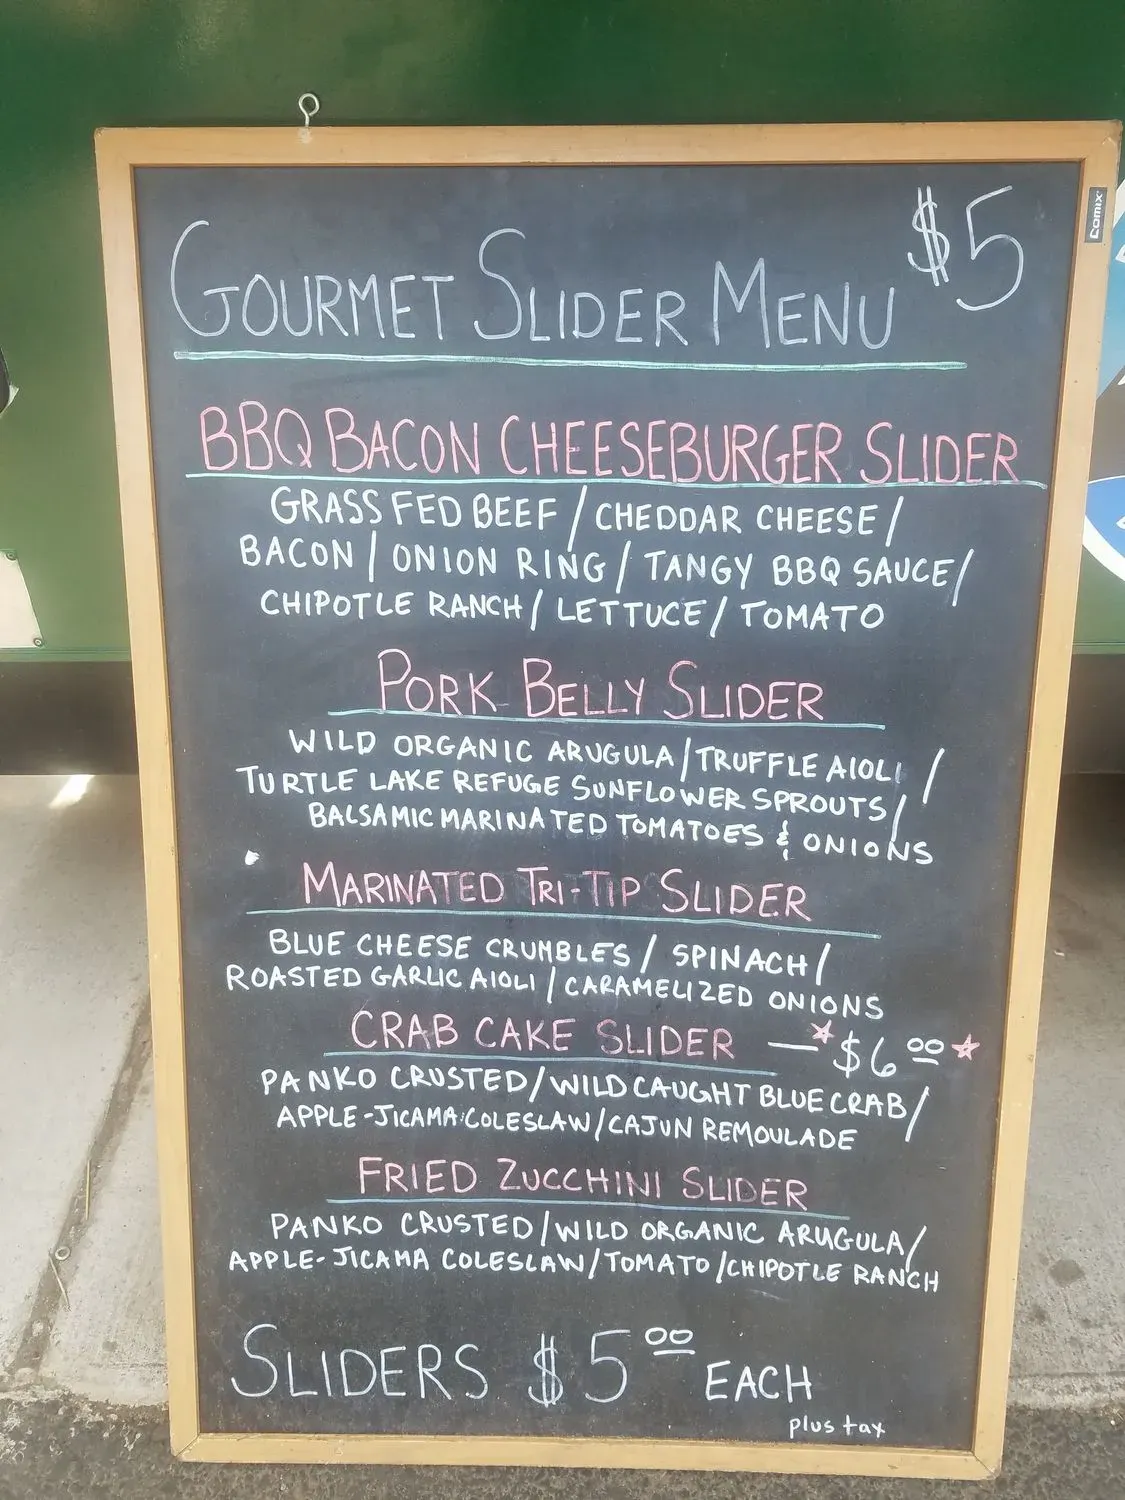 $5
GOURMET SLIDER MENU
comix
BBQ BACON CHEESEBURGER SLIDER
GRASS FED BEEF / CHEDDAR CHEESE /
BACON / ONION RING / TANGY BBQ SAUCE /
CHIPOTLE RANCH / LETTUCE / TOMATO
PORK BELLY SLIDER
WILD ORGANIC ARUGULA / TRUFFLE AIOLI /
TURTLE LAKE REFUGE SUNFLOWER SPROUTS /
BALSAMIC MARINATED TOMATOES & ONIONS
MARINATED TRI-TIP SLIDER
BLUE CHEESE CRUMBLES / SPINACH /
ROASTED GARLIC AIOLI / CARAMELIZED ONIONS
CRAB CAKE SLIDER — *$6.00*
PANKO CRUSTED / WILD CAUGHT BLUE CRAB /
APPLE-JICAMA COLESLAW / CAJUN REMOULADE
FRIED ZUCCHINI SLIDER
PANKO CRUSTED / WILD ORGANIC ARUGULA /
APPLE-JICAMA COLESLAW / TOMATO / CHIPOTLE RANCH
SLIDERS $5.00 EACH
plus tax